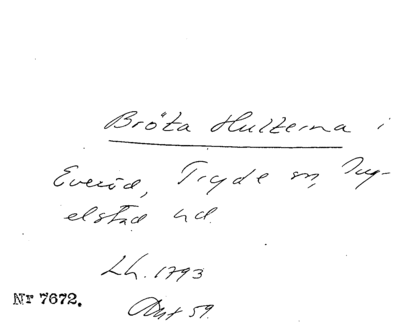 Bröta Hulterna i
Everöd, Tryde sn, Ing-
elstad hd.
Lh. 1793
Akt 59.
Nr 7672.